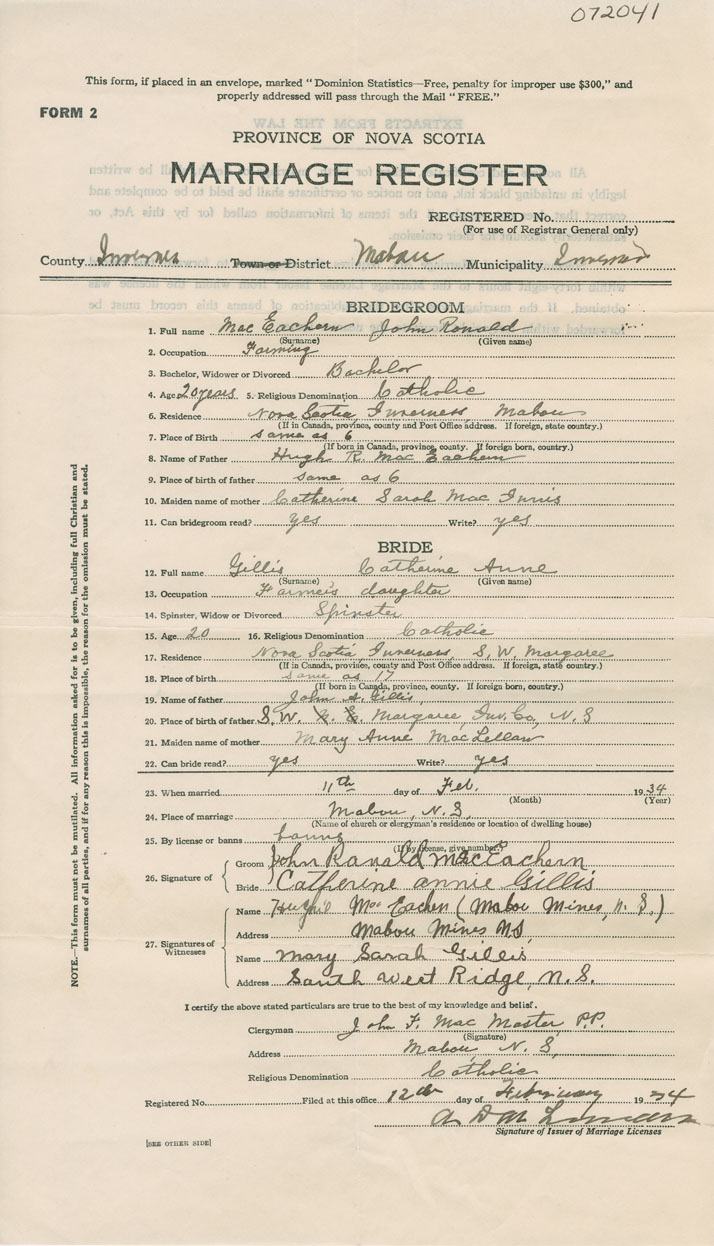 072041
This form, if placed in an envelope, marked "Dominion Statistics—Free, penalty for improper use $300," and
properly addressed will pass through the Mail "FREE."
FORM 2
PROVINCE OF NOVA SCOTIA
MARRIAGE REGISTER
REGISTERED No.
(For use of Registrar General only)
County Inverness Town or District Mabou Municipality Inverness
BRIDEGROOM
1. Full name Mac Eachern John Ronald
(Surname) (Given name)
2. Occupation Farming
3. Bachelor, Widower or Divorced Bachelor
4. Age 20 years 5. Religious Denomination Catholic
6. Residence Nova Scotia Inverness, Mabou
(If in Canada, province, county and Post Office address. If foreign, state country.)
7. Place of Birth same as 6
(If born in Canada, province, county. If foreign born, country.)
8. Name of Father Hugh R. Mac Eachern
9. Place of birth of father same as 6
10. Maiden name of mother Catherine Sarah Mac Innis
11. Can bridegroom read? yes Write? yes
BRIDE
12. Full name Gillis Catherine Anne
(Surname) (Given name)
13. Occupation Farmer's daughter
14. Spinster, Widow or Divorced Spinster
15. Age 20 16. Religious Denomination Catholic
17. Residence Nova Scotia Inverness, S. W. Margaree
(If in Canada, province, county and Post Office address. If foreign, state country.)
18. Place of birth same as 17
(If born in Canada, province, county. If foreign born, country.)
19. Name of father John A. Gillis
20. Place of birth of father S. W. Margaree, Inv. Co, N. S
21. Maiden name of mother Mary Anne MacLellan
22. Can bride read? yes Write? yes
23. When married 11th day of Feb. 1934
(Month) (Year)
24. Place of marriage Mabou, N. S,
(Name of church or clergyman's residence or location of dwelling house)
25. By license or banns banns
(If by license, give number)
26. Signature of
Groom John Ranald MacEachern
Bride Catherine annie Gillis
27. Signatures of
Witnesses
Name Mac Eachen (Mabou Mines, N. S.)
Address Mabou Mines NS,
Name Mary Sarah Gillis
Address South West Ridge, N.S.
I certify the above stated particulars are true to the best of my knowledge and belief.
Clergyman John F. Mac Master P.P.
(Signature)
Address Mabou, N. S,
Religious Denomination Catholic
Registered No. Filed at this office 12th day of February 1934
Signature of Issuer of Marriage Licenses
[SEE OTHER SIDE]
NOTE.—This form must not be mutilated. All information asked for is to be given, including full Christian and
surnames of all parties, and if for any reason this is impossible, the reason for the omission must be stated.